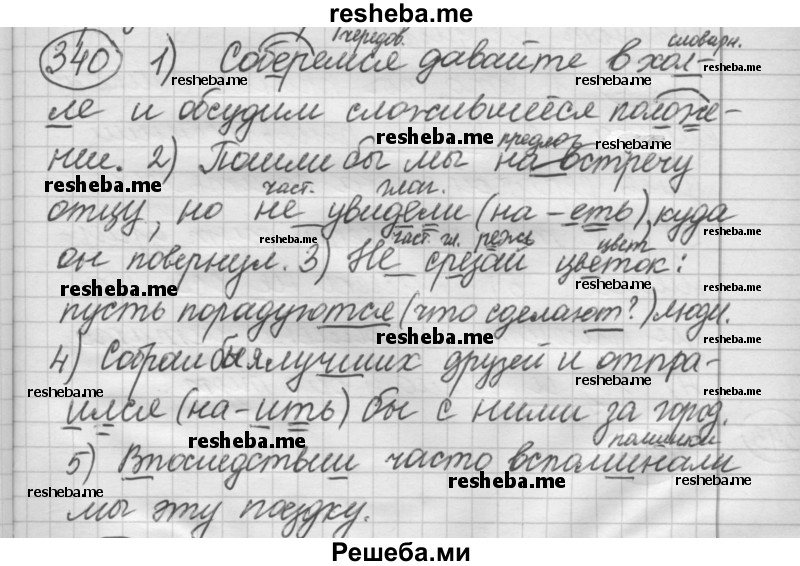 resheba.me
чередов. словарн.
340 1) Соберемся давайте в хол-
resheba.me resheba.me resheba.me
ле и обсудим сложившееся положе-
resheba.me предлог resheba.me
нии. 2) Пошли бы мы на встречу
resheba.me част. глаг. resheba.me
отцу, но не увидели (на -еть), куда
resheba.me част. гл. режь цвет resheba.me
он повернул. 3) Не срезай цветок:
resheba.me resheba.me resheba.me
пусть порадуются (что сделают?) люди.
resheba.me resheba.me
4) Собрал бы я лучших друзей и отпра-
resheba.me resheba.me
ился (на -ить) бы с ними за город.
resheba.me помилки resheba.me
5) Впоследствии часто вспоминали
resheba.me resheba.me resheba.me
мы эту поездку.
Решеба.ми